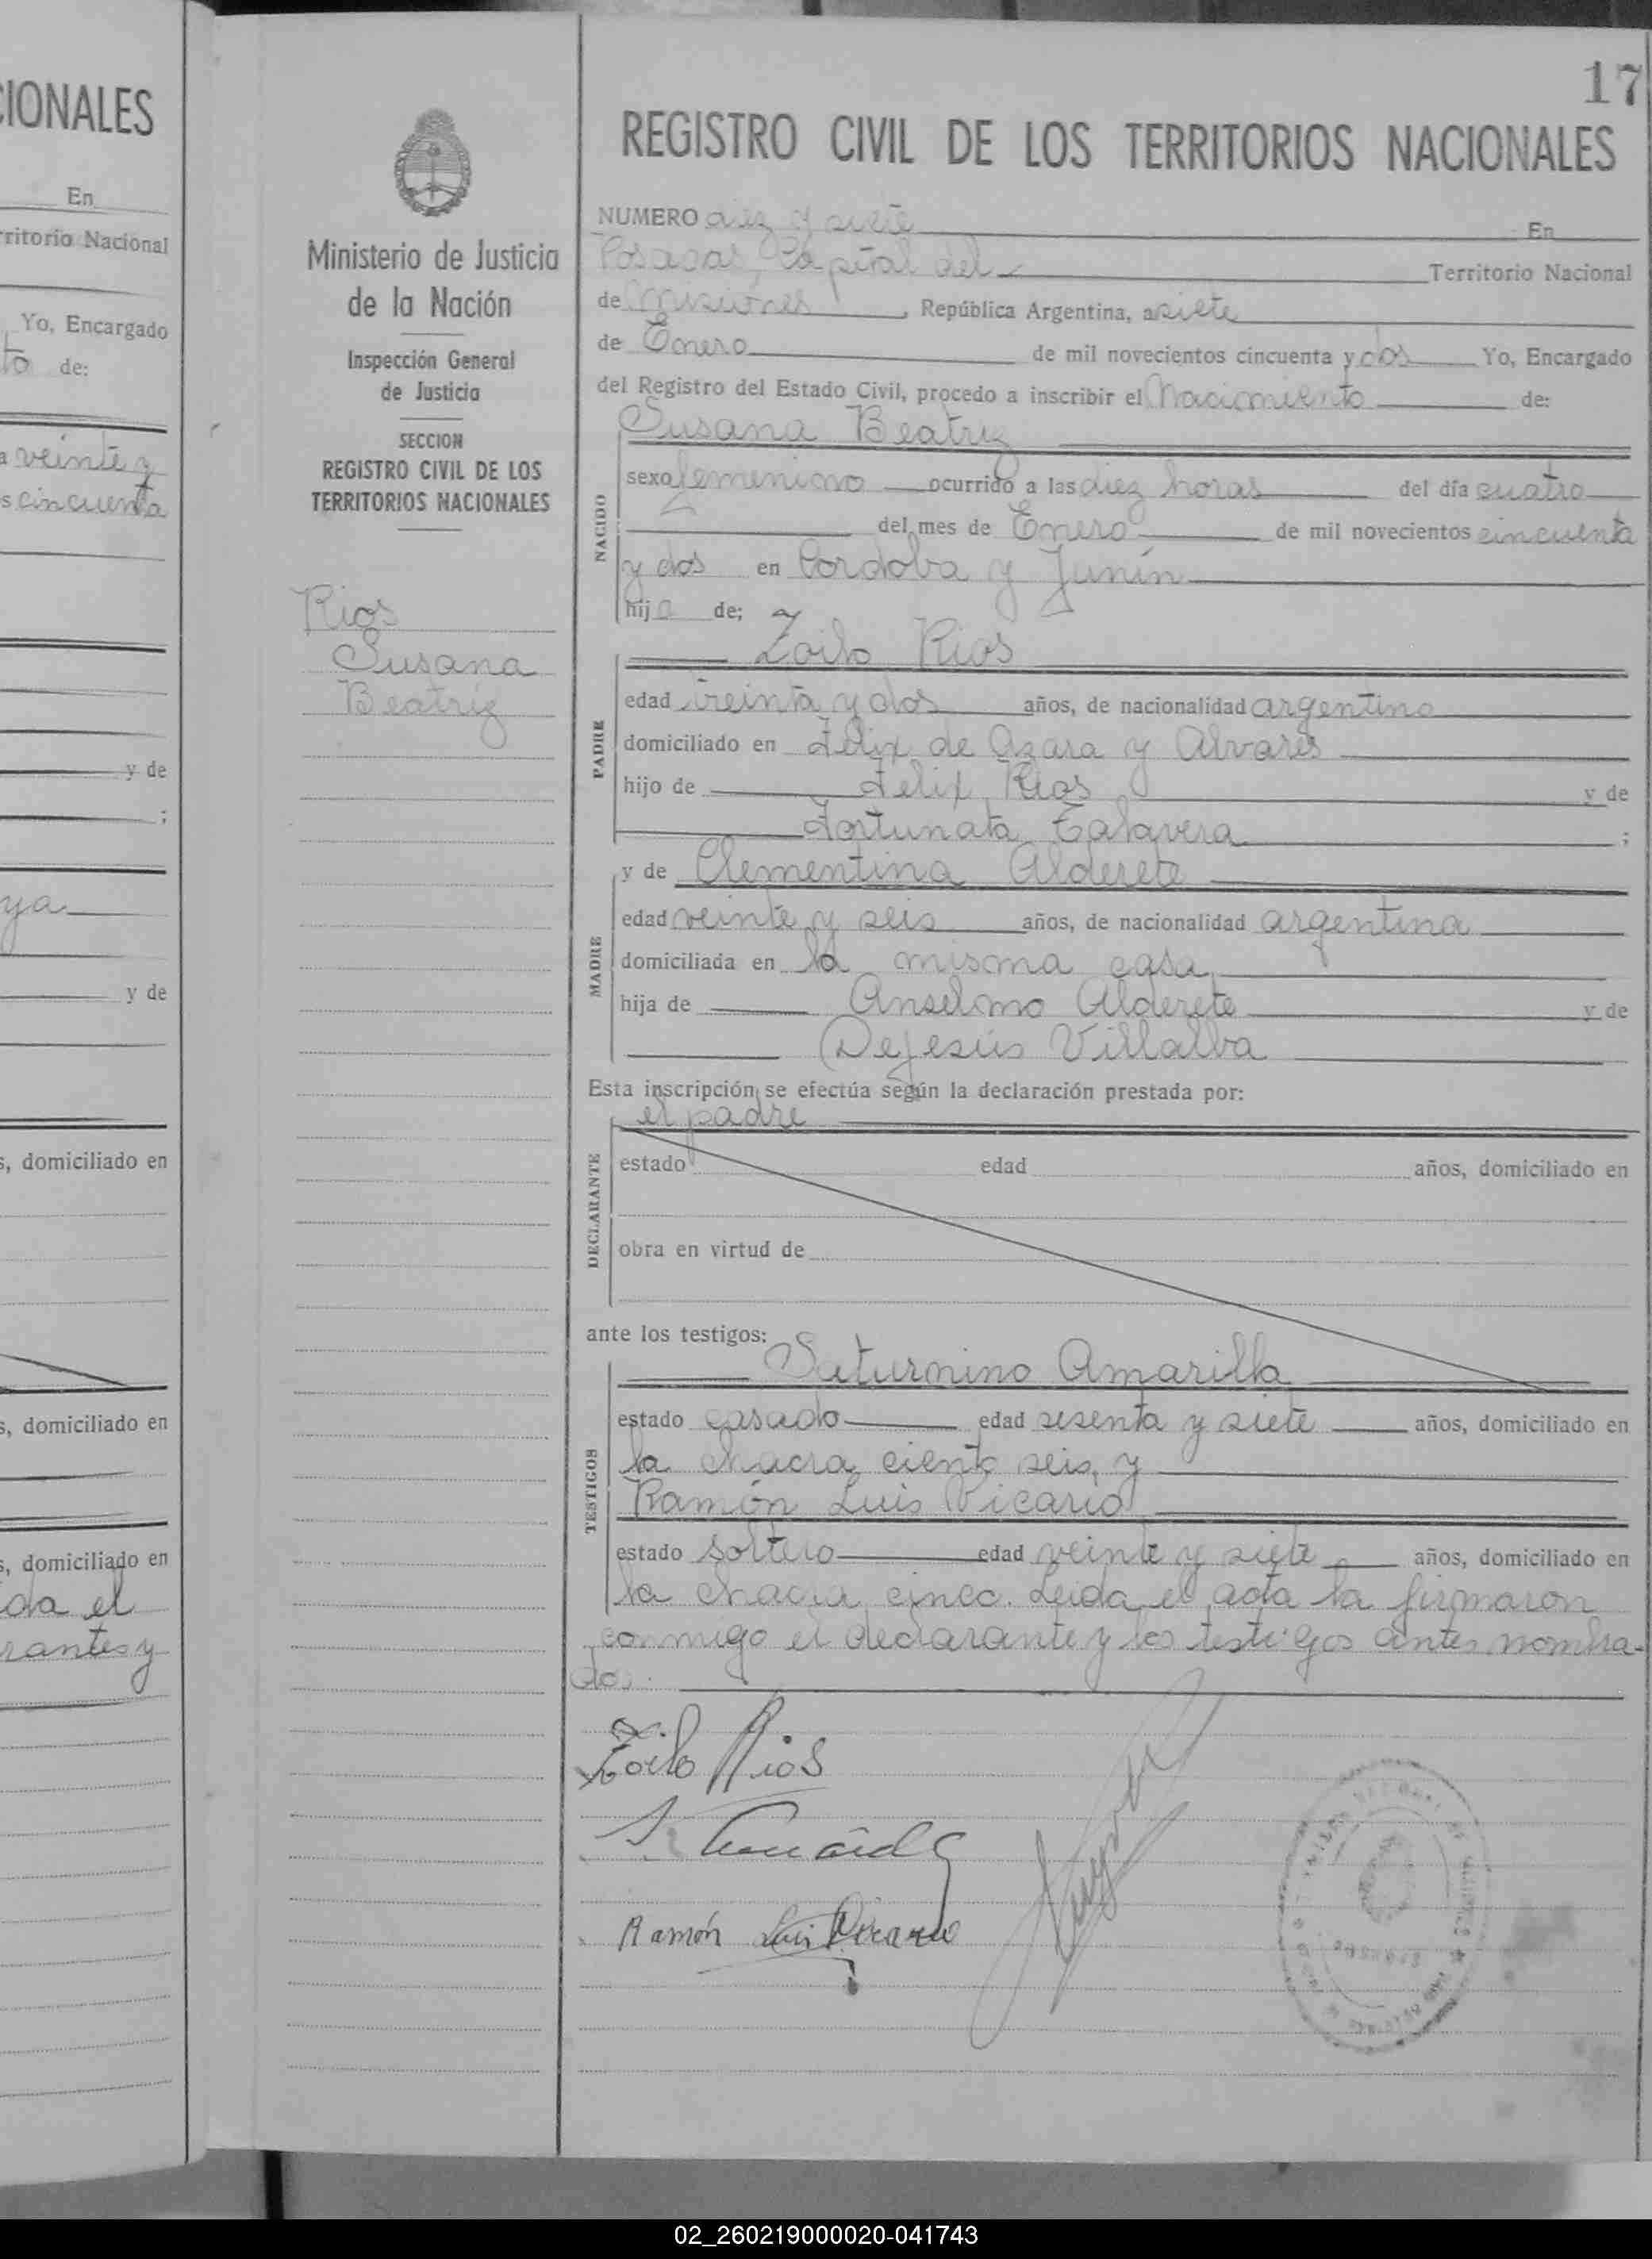 CIONALES
En
rritorio Nacional
Yo, Encargado
to de:
a veinte y
s cincuenta
y de
;
ya
y de
s, domiciliado en
s, domiciliado en
s, domiciliado en
da el
rantes y
Ministerio de Justicia
de la Nación
Inspección General
de Justicia
SECCION
REGISTRO CIVIL DE LOS
TERRITORIOS NACIONALES
Rios
Susana
Beatriz
17
REGISTRO CIVIL DE LOS TERRITORIOS NACIONALES
NUMERO diez y siete En
Posadas, Capital del Territorio Nacional
de Misiones, República Argentina, a siete
de Enero de mil novecientos cincuenta y dos Yo, Encargado
del Registro del Estado Civil, procedo a inscribir el Nacimiento de:
Susana Beatriz
NACIDO
sexo femenino ocurrido a las diez horas del día cuatro
del mes de Enero de mil novecientos cincuenta
y dos en Cordoba y Junín
hija de;
Zoilo Rios
PADRE
edad treinta y dos años, de nacionalidad argentino
domiciliado en Felix de Azara y Alvares
hijo de Felix Rios y de
Fortunata Talavera ;
y de Clementina Alderete
MADRE
edad veinte y seis años, de nacionalidad argentina
domiciliada en la misma casa,
hija de Anselmo Alderete y de
DeJesús Villalba
Esta inscripción se efectúa según la declaración prestada por:
el padre
DECLARANTE
estado edad años, domiciliado en
obra en virtud de
ante los testigos:
Saturnino Amarilla
TESTIGOS
estado casado edad sesenta y siete años, domiciliado en
la chacra ciento seis, y
Ramón Luis Vicario
estado soltero edad veinte y siete años, domiciliado en
la chacra cinco. Leida el acta la firmaron
conmigo el declarante y los testigos antes nombra-
dos.
Zoilo Rios
Ramón Luis Vicario
02_260219000020-041743